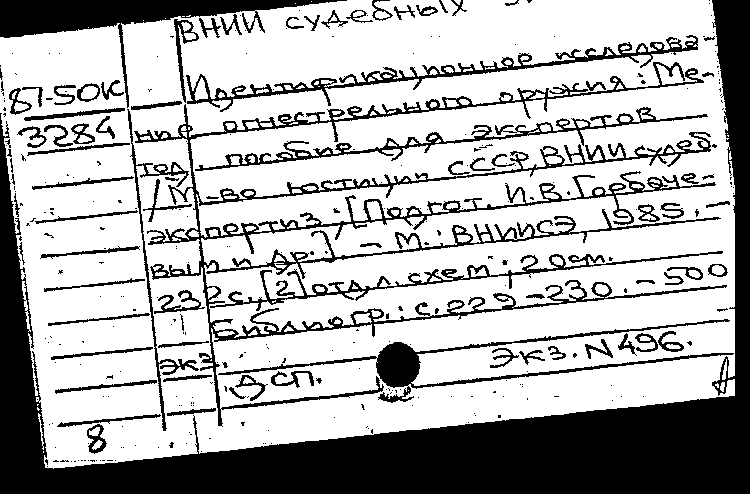 ВНИИ судебных
87-50К Идентификационное исследова-
3284 ние огнестрельного оружия: Ме-
тод. пособие для экспертов
/М-во юстиции СССР, ВНИИ судеб.
экспертиз; [Подгот. И.В. Горбаче-
вым и др.]. - М.: ВНИИСЭ, 1985. -
232с., [2] отд. л. схем; 20см.
Библиогр.: с. 229-230. - 500
экз.
Экз. N 496.
ДСП.
8